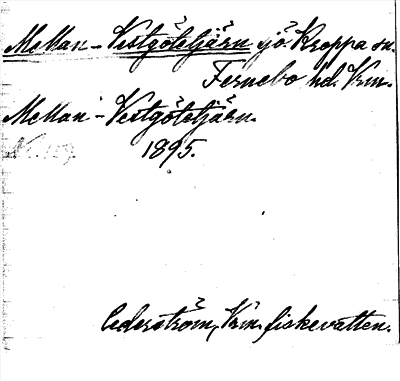 Mellan-Vestgötetjärn sjö. Kroppa sn.
Fernebo hd. Vrm.
Mellan-Vestgötetjärn.
1895.
Cederström, Vrm. fiskevatten.